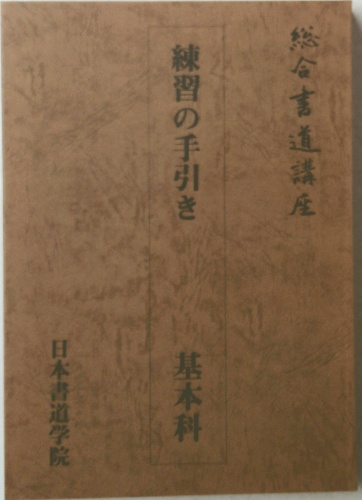 総合書道講座
練習の手引き 基本科
日本書道学院